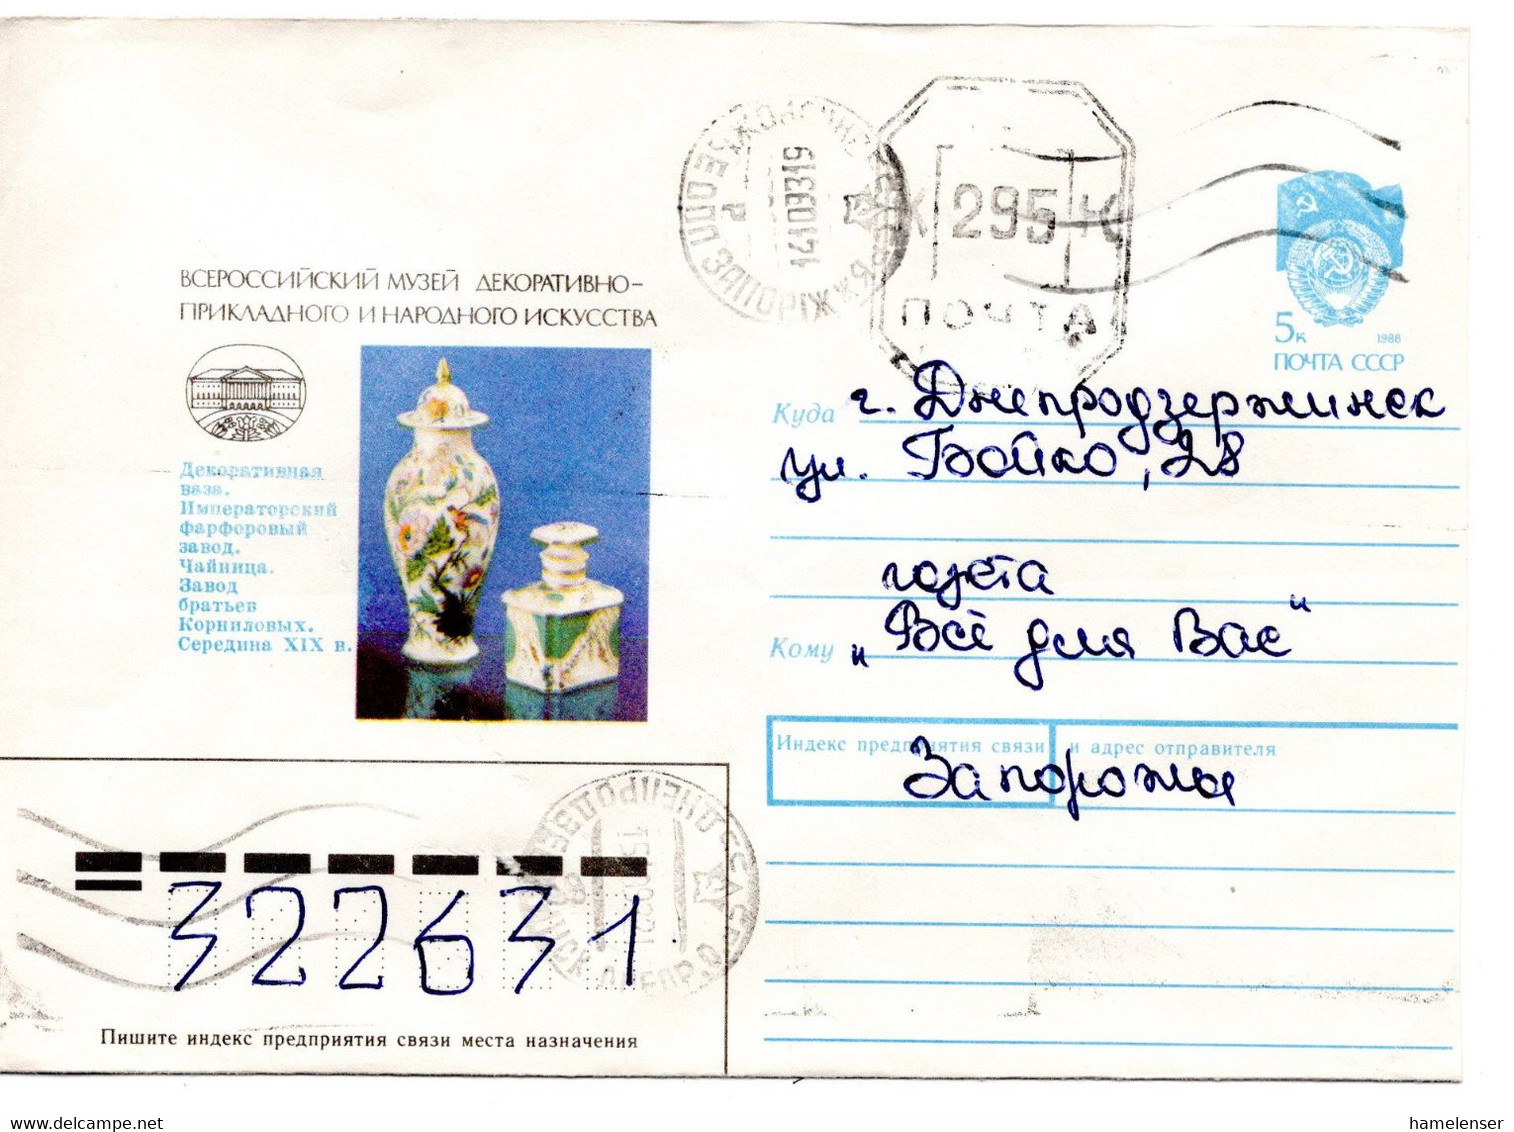 ВСЕРОССИЙСКИЙ МУЗЕЙ ДЕКОРАТИВНО-
ПРИКЛАДНОГО И НАРОДНОГО ИСКУССТВА
Декоративная
ваза.
Императорский
фарфоровый
завод.
Чайница.
Завод
братьев
Корниловых.
Середина XIX в.
ЗАПОРІЖЖЯ
14109319
295
ПОЧТА
5к
1988
ПОЧТА СССР
Куда г. Днепродзержинск
ул. Бойко, 28
газета
Кому „Всё для Вас"
Индекс предприятия связи и адрес отправителя
Запорожье
322631
Пишите индекс предприятия связи места назначения
hamelenser